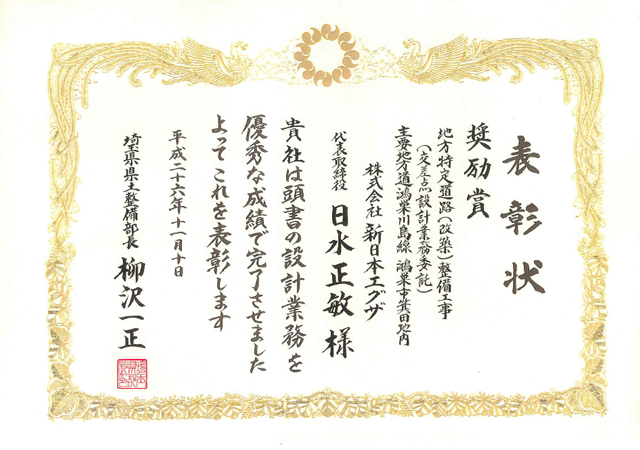 表彰状
奨励賞
地方特定道路(改築)整備工事
(交差点設計業務委託)
主要地方道鴻巣川島線 鴻巣市箕田地内
株式会社 新日本エグザ
代表取締役 日水正敏 様
貴社は頭書の設計業務を
優秀な成績で完了させました
よってこれを表彰します
平成二十六年十一月十日
埼玉県県土整備部長 柳沢一正